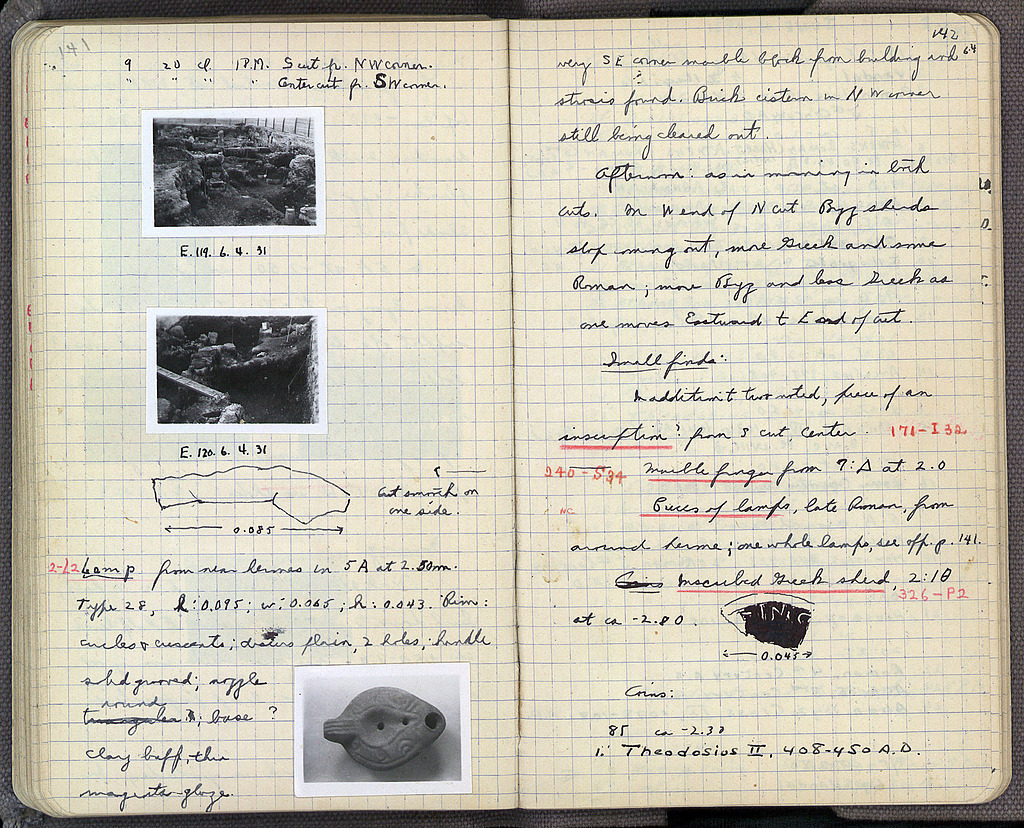 141
" 9 20 cf. 1 P.M. S cut fr. NW corner.
" " " " " Center cut fr. SW corner.
E. 119. 6. 4. 31
E. 120. 6. 4. 31
0.085
Cut smooth on
one side.
2-L2 Lamp from near hermes in 5A at 2.50m.
Type 28, l: 0.095; w: 0.065; h: 0.043. Rim:
circles & crescents; discus plain, 2 holes; handle
solid grooved; nozzle
round
triangular; base ?
clay buff, thin
magenta glaze.
142
very SE corner marble block from building and 6.4
strosis found. Brick cistern in NW corner
still being cleared out.
Afternoon: as in morning in both
cuts. In W end of N cut Byz sherds
stop coming out, more Greek and some
Roman; more Byz and less Greek as
one moves Eastward to E end of cut.
Small finds:
In addition to two noted, piece of an
inscription? from S cut, center. 171-I 32
240-S34 Marble finger from 9:A at 2.0
NC Pieces of lamps, late Roman, from
around herme; one whole lamps, see opp. p. 141.
Coins Inscribed Greek sherd, 2:1θ
326-P2
at ca -2.80.
0.045
Coins:
85 ca -2.30
1: Theodosius II, 408-450 A.D.